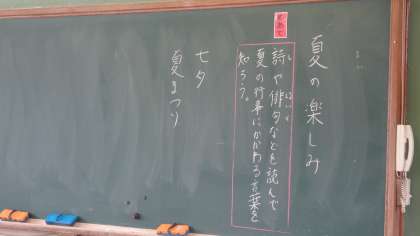 夏の楽しみ
めあて
詩や俳句などを読んで
夏の行事にかかわる言葉を
知ろう。
七夕
夏まつり